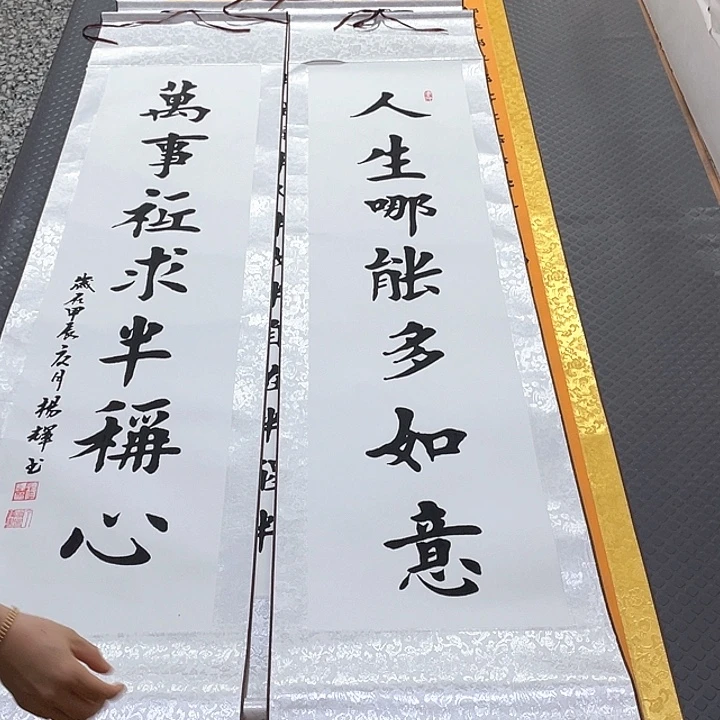 人生哪能多如意
萬事祗求半稱心
歲在甲辰月楊輝书